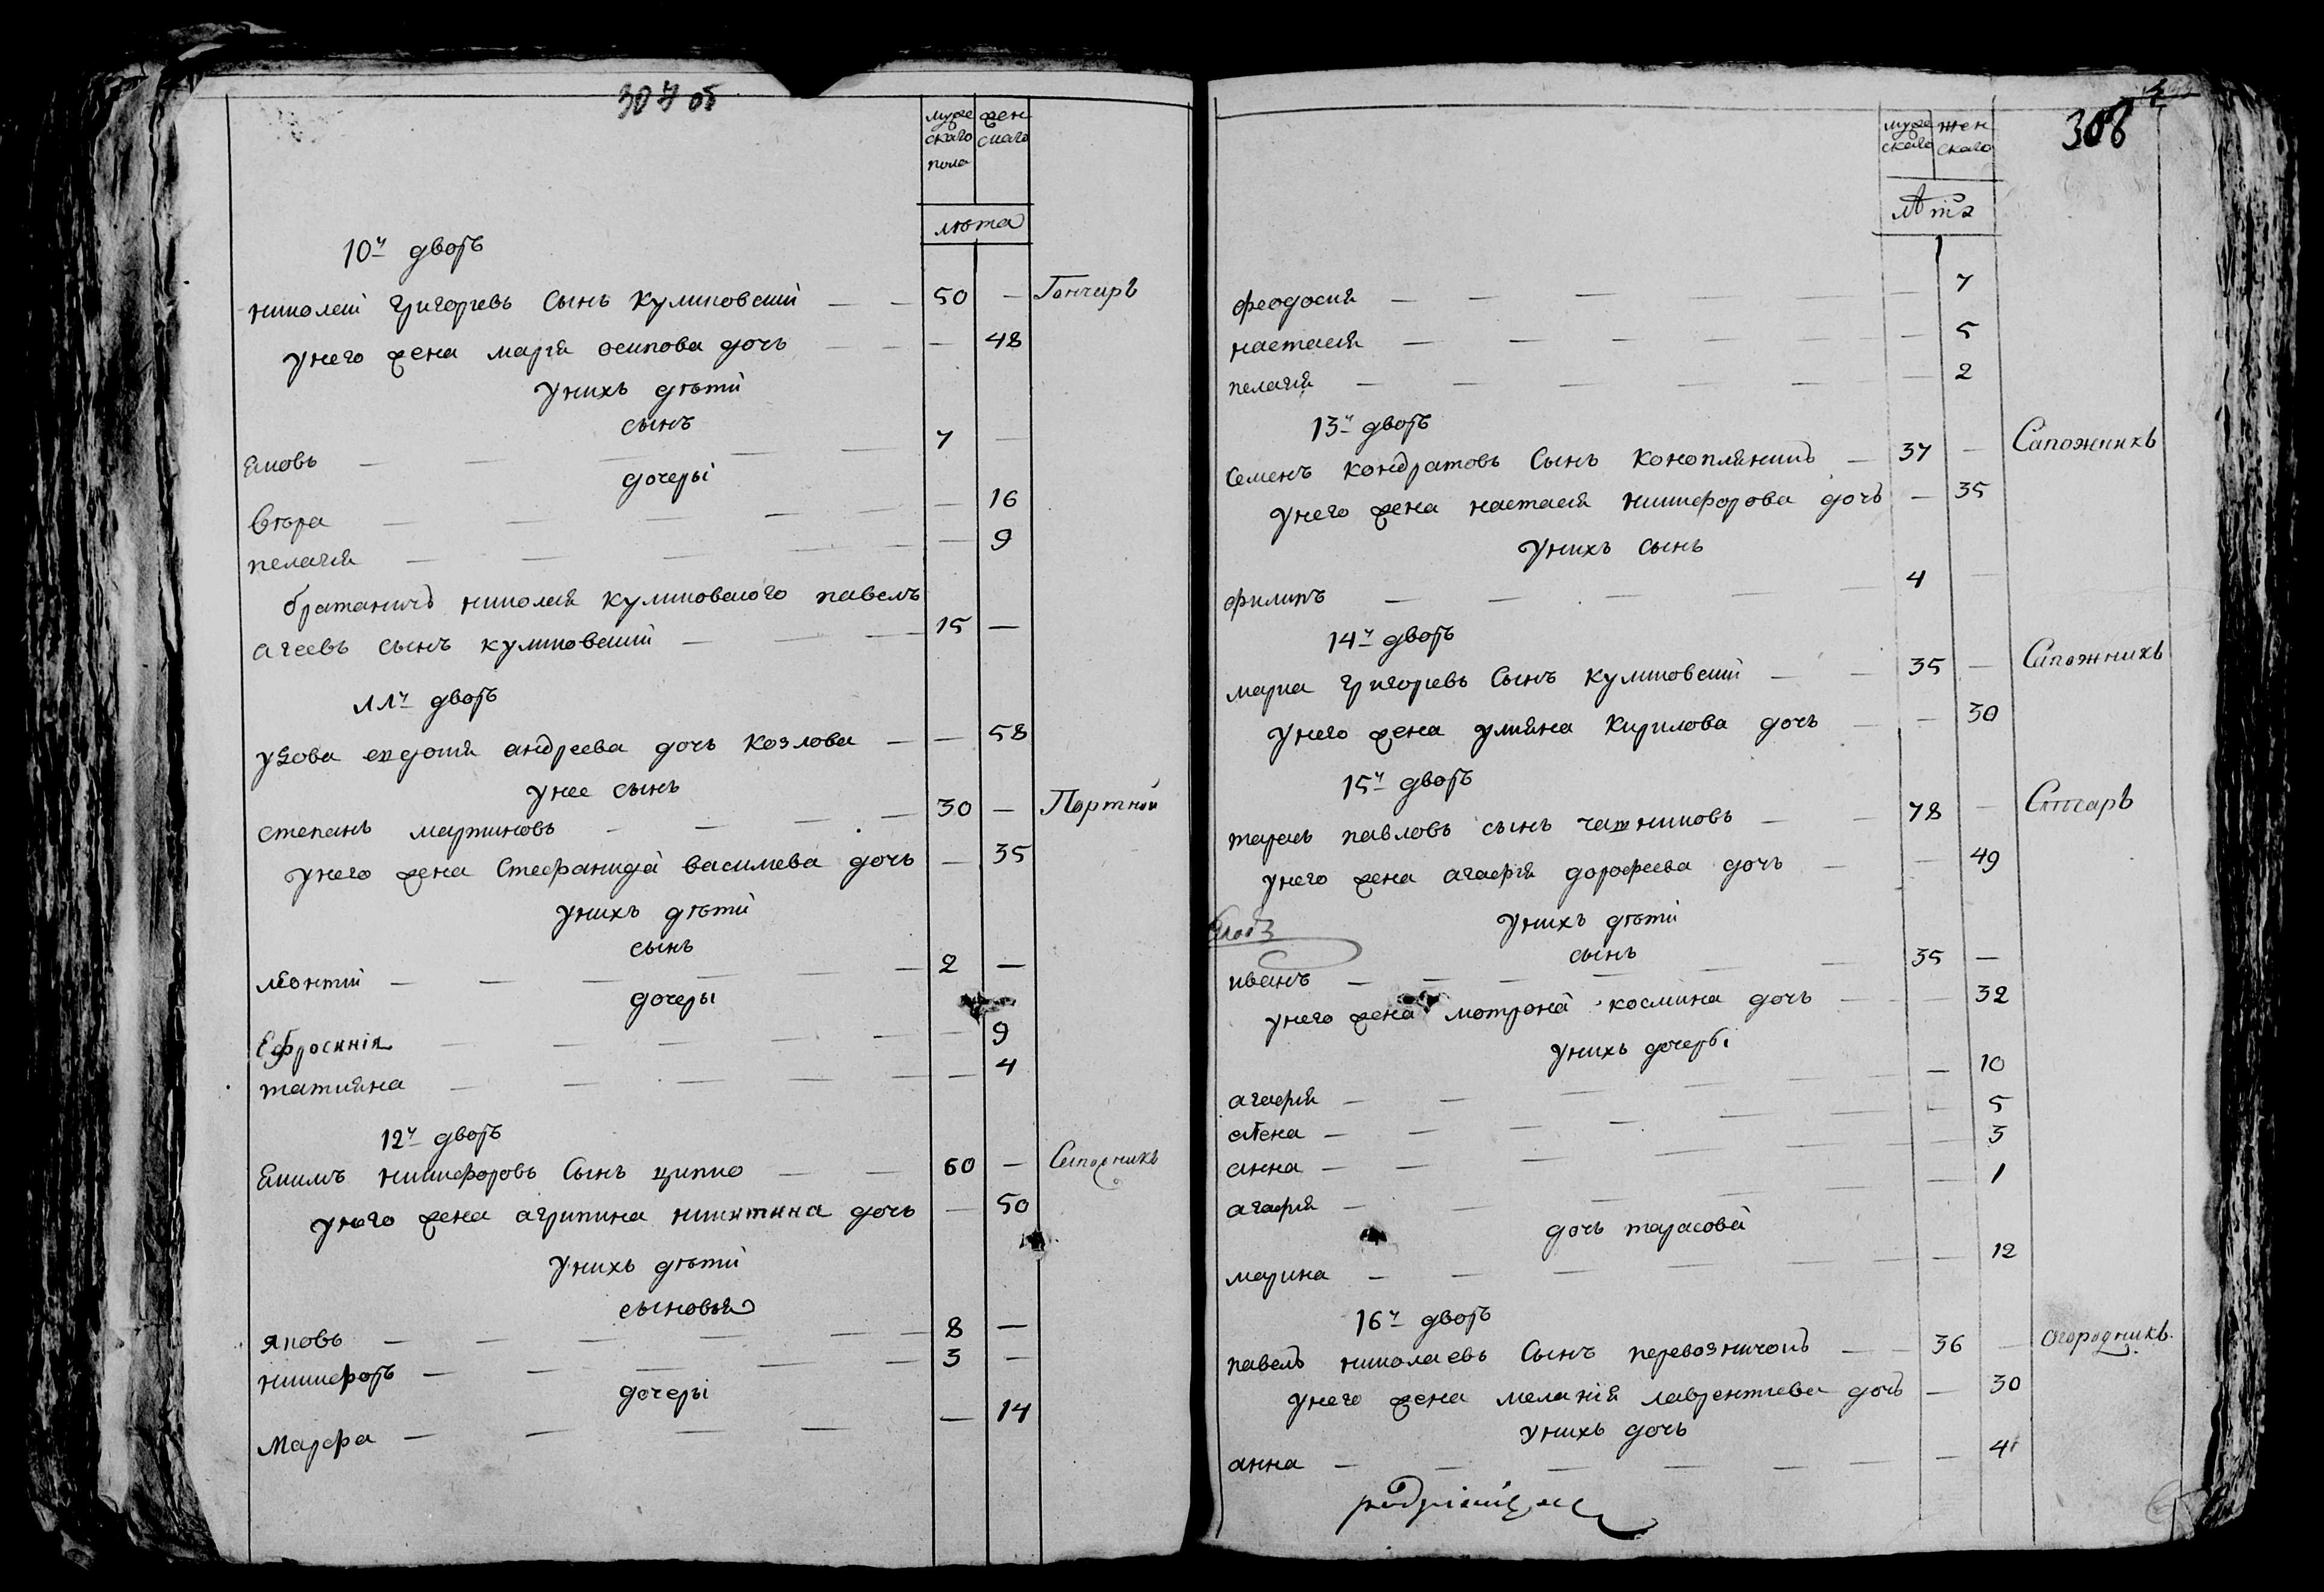 307 об
муже
скаго
пола
жен
скаго
лѣта
10й дворъ
николай Григориевъ Сынъ Куликовский — — 50 — Гончаръ
унего жена мария осипова дочь — — — 48
унихъ дѣти
сынъ
Яковъ — — — — — 7 —
дочеры
вѣра — — — — — 16
пелагия — — — — — 9
братаничъ николая куликовского павелъ
агеевъ сынъ куликовский — — — 15 —
11й дворъ
удова евдотия андреева дочь Козлова — — 58
унее сынъ
степанъ мартиновъ — — — — 30 — Портной
унего жена Стефанида василиева дочь — 35
унихъ дѣти
сынъ
леонтий — — — — — — 2 —
дочеры
Ефросиния — — — — — — 9
татияна — — — — — — 4
12й дворъ
Якимъ никифоровъ Сынъ ципко — — 60 — Сапожникъ
унего жена агрипина никитина дочь — 50
унихъ дѣти
сыновья
яковъ — — — — — — 8 —
никифоръ — — — — — 3 —
дочеры
Марфа — — — — — 14
308
муже
скаго
жен
скаго
лѣтъ
феодосия — — — — — — 7
настасия — — — — — — 5
пелагия — — — — — — 2
13й дворъ
Семенъ Кондратовъ Сынъ Конопляникъ — 37 — Сапожникъ
унего жена настасия никифорова дочь — 35
унихъ сынъ
филипъ — — — — — 4 —
14й дворъ
марко Григориевъ Сынъ Куликовский — — 35 — Сапожникъ
унего жена улияна Кирилова дочь — — 30
15й дворъ
тарасъ павловъ сынъ чатниковъ — — 78 — Слюсаръ
унего жена агафия дорофеева дочь — — 49
унихъ дѣти
сынъ
иванъ — — — — — 35 —
унего жена мотрона космина дочь — — 32
унихъ дочеры
агафия — — — — — — 10
елена — — — — — — 5
анна — — — — — — 3
агафия — — — — — 1
дочь тарасова
марина — — — — — — 12
16й дворъ
павелъ николаевъ Сынъ перевозничокъ — — 36 — Огородникъ
унего жена мелания лаврентиева дочь — 30
унихъ дочь
анна — — — — — — 4